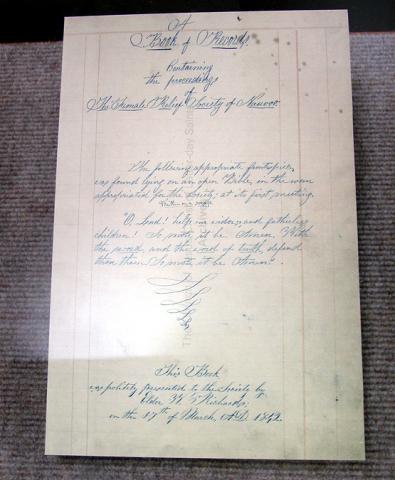 A
Book of Records.
Containing
the proceedings
of
The Female Relief Society of Nauvoo.
The following appropriate frontispiece
was found lying on an open Bible, in the room
appropriated for the Society; at its first meeting.
"O, Lord! help our widows, and fatherless
children! So mote it be. Amen. With
the sword, and the word of truth, defend
thou them. So mote it be. Amen."
This Book
was politely presented to the Society by
Elder W. Richards;
on the 17th of March, AD. 1842.